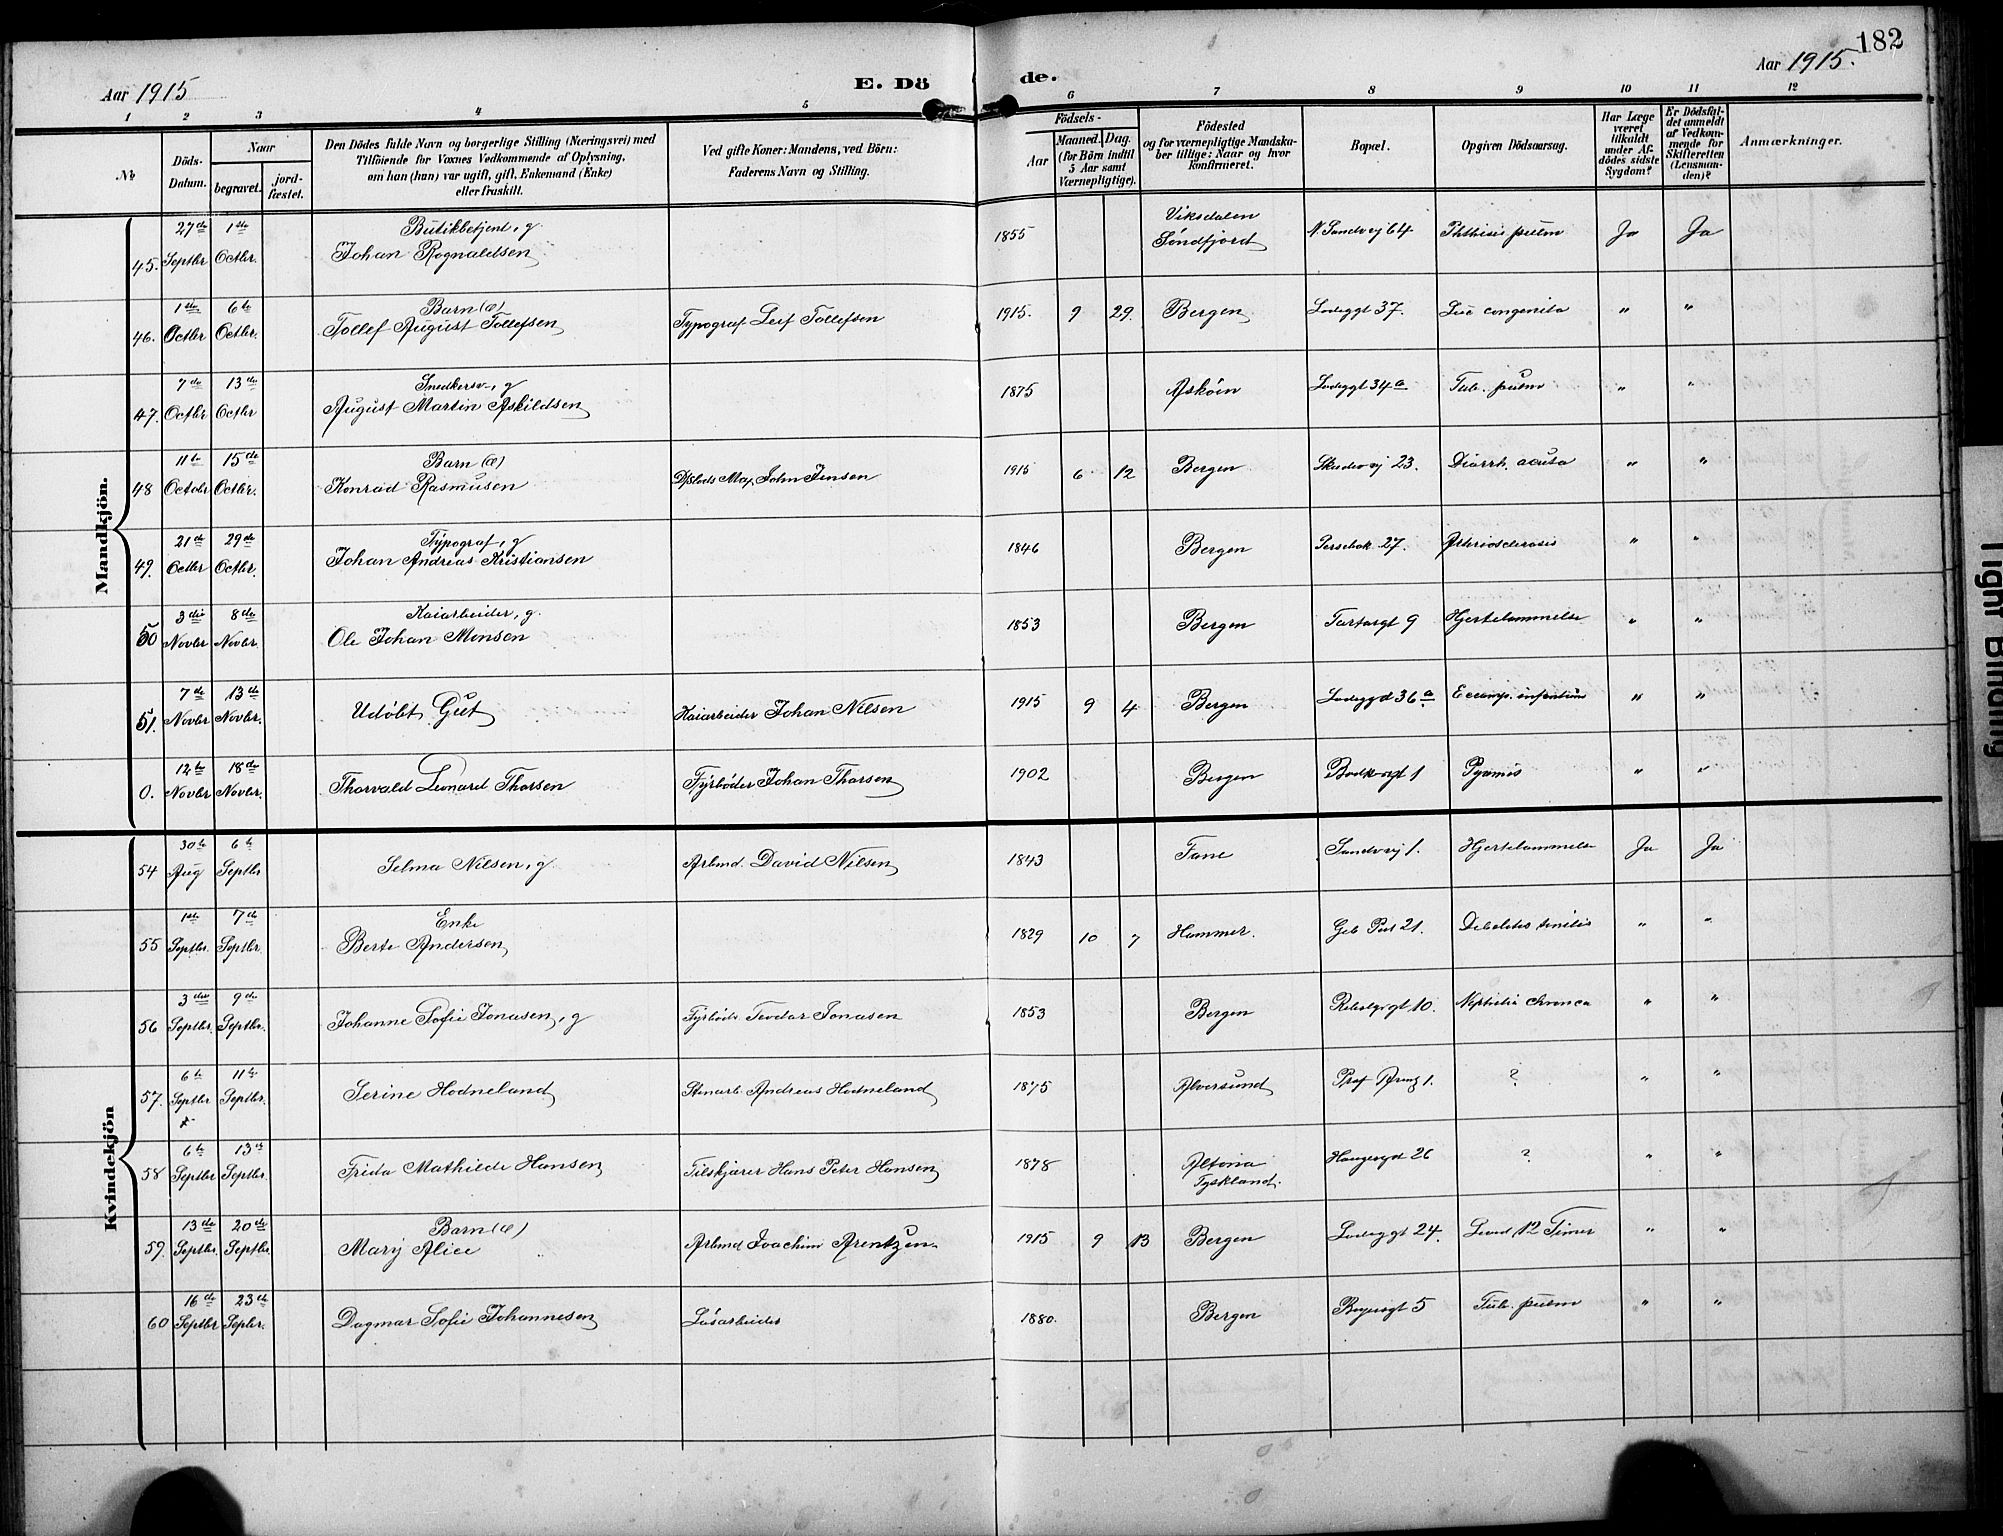 182
Aar 1915
E. Dö
de.
Aar 1915.
1 2 3 4 5 6 7 8 9 10 11 12
№
Döds-Datum.
Naar
begravet.
jord-fæstet.
Den Dödes fulde Navn og borgerlige Stilling (Næringsvei) med
Tilföiende for Voxnes Vedkommende af Oplysning,
om han (hun) var ugift, gift, Enkemand (Enke)
eller fraskilt.
Ved gifte Koner: Mandens, ved Börn:
Faderens Navn og Stilling.
Födsels-
Aar
Maaned. Dag.
(for Börn indtil
5 Aar samt
Værnepligtige).
Födested
og for værnepligtige Mandska-
ber tillige: Naar og hvor
konfirmeret.
Bopæl.
Opgiven Dödsaarsag.
Har Læge
været
tilkaldt
under Af-
dödes sidste
Sygdom?
Er Dödsfal-
det anmeldt
af Vedkom-
mende for
Skifteretten
(Lensman-
den)?
Anmærkninger.
Mandkjön.
27de 1ste Butikbetjent, g Viksdalen
45. Septbr Octbr. Johan Rognaldsen 1855 Söndfjord N. Sandvej 64 Phthisis pulm Ja Ja
1ste 6te Barn (æ)
46. Octbr Octbr. Tollef August Tollefsen Typograf Leif Tollefsen 1915. 9 29. Bergen Ladeggt 37. Lue congenita " "
7de 13de Snedkersv., g
47. Octbr Octbr August Martin Askildsen 1875 Askøen Ladeggt 34a Tub. pulm " "
11te 15de Barn (æ)
48 Octobr Octbr. Konrad Rasmusen John Jensen 1915 6 12 Bergen Skudevej 23. Diarrh. acuta " "
21de 29de Typograf, g
49. Octbr Octbr. Johan Andreas Kristiansen 1846 Bergen 27. " "
3die 8de Kaiarbeider, g.
50 Novbr Novbr. Ole Johan Monsen 1853 Bergen Tartargt 9 Hjertelammelse " "
7de 13de
51. Novbr Novbr. Udöbt Gut Kaiarbeider Johan Nilsen 1915 9 4 Bergen 36a Eccamp. infantum " "
12te 18de
0. Novbr Novbr. Thorvald Leonard Thorsen Fyrböder Johan Thorsen 1902 Bergen 1 Pyæmis " "
Kvindekjön
30te 6te
54 Aug Septbr Selma Nilsen, g Arbmd. David Nilsen 1843 Fane Sandvej 1. Hjertelammelse Ja Ja
1ste 7de Enke
55 Septbr. Septbr. Berte Andersen 1829 10 7 Hammer. 21. " "
3die 9de
56 Septbr. Septbr. Johanne Sofie Jonasen, g Fyrbödr. Teodor Jonasen 1853 Bergen 10. " "
6te 11te
57. Septbr Septbr. Serine Hodneland Stenarb. Andreas Hodneland 1875 Alversund 1. ? " "
6te 13de
58 Septbr Septbr. Frida Mathilde Hansen Filskjærer Hans Peter Hansen 1878 Altona Haugevgd 26 ? " "
Tyskland.
13de 20de Barn (æ)
59. Septbr. Septbr. Mary Alice Arbmd Joachim Arentzen 1915 9 13 Bergen Ladeggt 24. Leved 12 Timer " "
16de 23de
60 Septbr Sepbr. Dagmar Sofie Johannesen Lösarbeider 1880. Bergen 5 Tub. pulm " "
Tight Binding